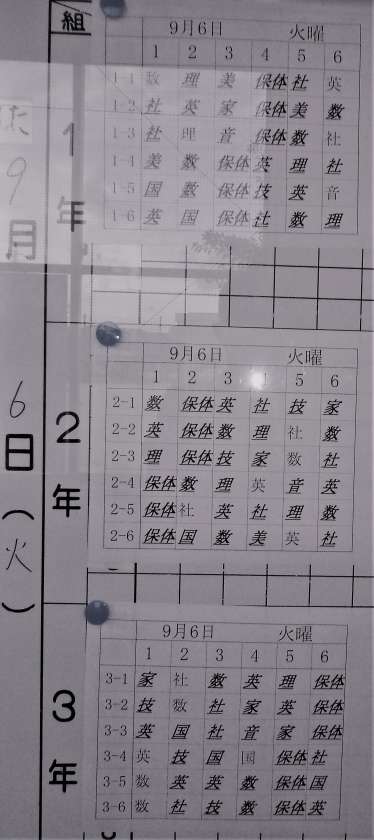 組
9月6日 火曜
1 2 3 4 5 6
1-1 数 理 美 保体 社 英
1-2 社 英 家 保体 美 数
1-3 社 理 音 保体 数 社
1-4 美 数 保体 英 理 社
1-5 国 数 保体 技 英 音
1-6 英 国 保体 社 数 理
1年
9月
6日(火)
9月6日 火曜
1 2 3 4 5 6
2-1 数 保体 英 社 技 家
2-2 英 保体 数 理 社 数
2-3 理 保体 技 家 数 社
2-4 保体 数 理 英 音 英
2-5 保体 社 英 社 理 数
2-6 保体 国 数 美 英 社
2年
9月6日 火曜
1 2 3 4 5 6
3-1 家 社 数 英 理 保体
3-2 技 数 社 家 英 保体
3-3 英 国 社 音 家 保体
3-4 英 技 国 国 保体 社
3-5 数 英 英 数 保体 国
3-6 数 社 技 数 保体 英
3年